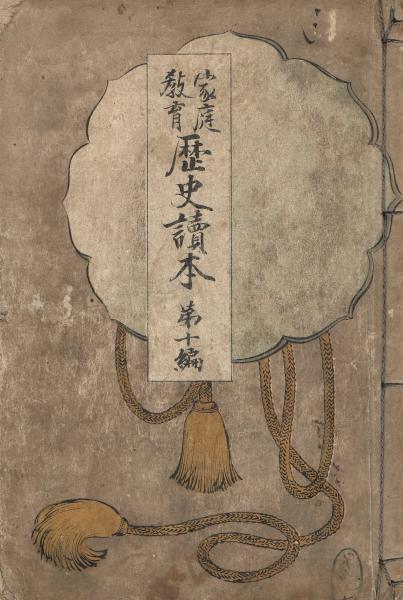 家庭
教育
歴史讀本
第十編